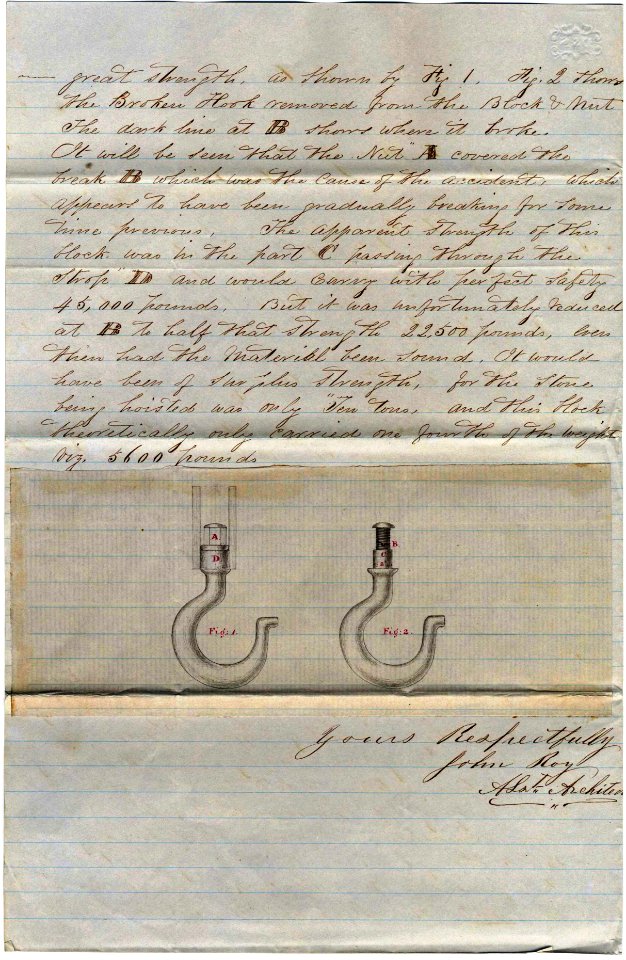 great strength, as shown by Fig 1. Fig. 2 shows
the Broken Hook removed from the Block & Nut
The dark line at B shows where it broke.
It will be seen that the "Nut" A covered the
break B which was the cause of the accident, which
appears to have been gradually breaking for some
time previous. The apparent strength of this
block was in the part C passing through the
"Strop" D and would carry with perfect safety
45,000 pounds. But it was unfortunately reduced
at B to half that strength 22,500 pounds, even
then had the Material been sound. It would
have been of surplus strength, for the Stone
being hoisted was only "Ten tons, and this block
theoretically only carried one fourth of the weight
viz. 5600 pounds
A
D
Fig: 1.
B
C
Fig: 2.
Yours Respectfully
John Roy
Asst. Architect